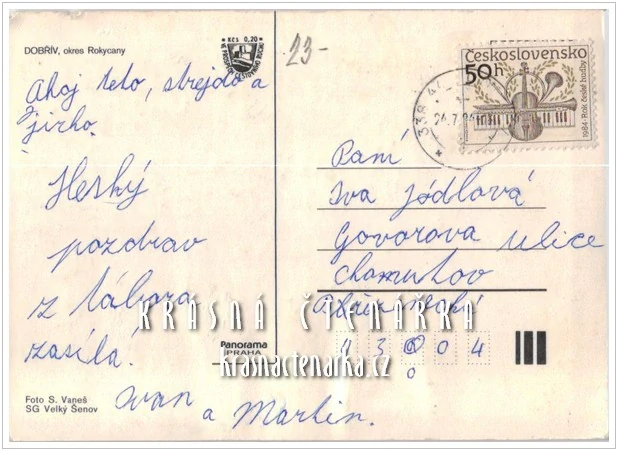 DOBŘÍV, okres Rokycany
Kčs 0,20
23-
Československo
50h
1984-Rok české hudby
338 4
24.7.8
Ahoj teto, strejdo a
jirko.
Heský
pozdrav
z tábora
zasílá
Ivan
a Martin.
Paní
Iva Jódlová
Govorova ulice
Chomutov
43004
0
KRÁSNÁ ČTENÁŘKA
krasnactenarka.cz
Panorama
PRAHA
Foto S. Vaneš
SG Velký Šenov